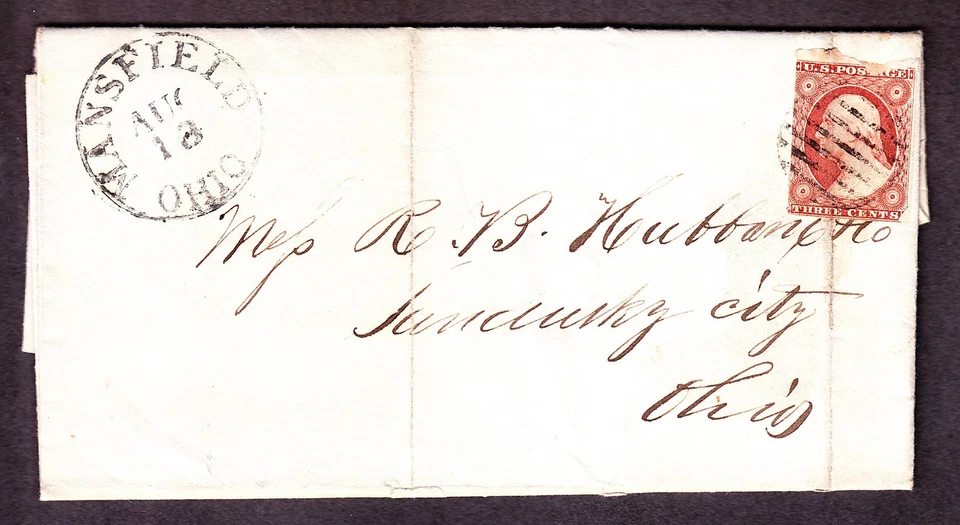 MANSFIELD
AUG
18
OHIO
U.S. POSTAGE
THREE CENTS
Mess R. B. Hubbard & Co
Sandusky city
Ohio